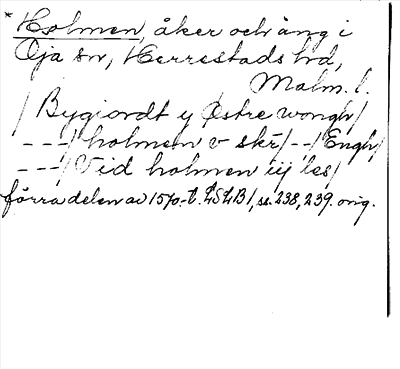 * Holmen, åker och äng i
Öja sn, Herrestads hd,
Malm. l.
/ Bygiordt y Østre wongh/
---/ holmen v skr/--/Engh/
---/ Vid holmen iij les/
förra delen av 1570-t. LSLB1, ss. 238, 239. orig.